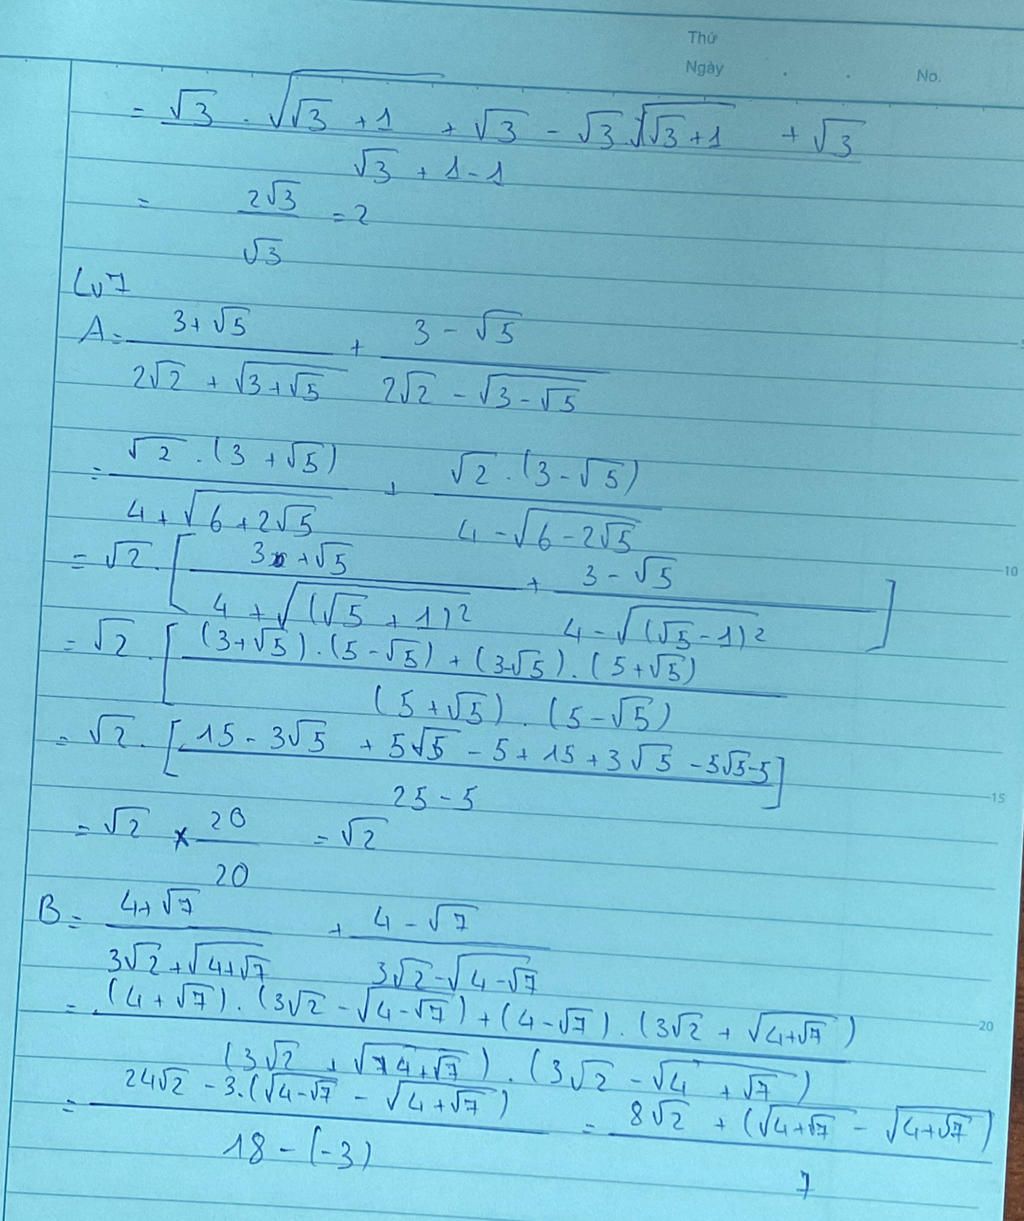 Thứ
Ngày . . No.
= √3 . √(√3 + 1) + √3 - √3 . √(√3 + 1) + √3 / √3 + 1 - 1
= 2√3 / √3 = 2
Lv7
A = 3 + √5 / 2√2 + √(3 + √5) + 3 - √5 / 2√2 - √(3 - √5)
= √2 . (3 + √5) / 4 + √(6 + 2√5) + √2 . (3 - √5) / 4 - √(6 - 2√5)
= √2 . [ 3 + √5 / 4 + √((√5 + 1)²) + 3 - √5 / 4 - √((√5 - 1)²) ]
10
= √2 . [ (3 + √5) . (5 - √5) + (3 - √5) . (5 + √5) / (5 + √5) . (5 - √5)
= √2 . [ 15 - 3√5 + 5√5 - 5 + 15 + 3√5 - 5√5 - 5 / 25 - 5 ]
15
= √2 × 20 / 20 = √2
B = 4 + √7 / 3√2 + √(4 + √7) + 4 - √7 / 3√2 - √(4 - √7)
= (4 + √7) . (3√2 - √(4 - √7)) + (4 - √7) . (3√2 + √(4 + √7)) / (3√2 + √(4 + √7)) . (3√2 - √(4 + √7))
20
= 24√2 - 3 . (√(4 - √7) - √(4 + √7)) / 18 - (-3) = 8√2 + (√(4 + √7) - √(4 + √7)) / 7